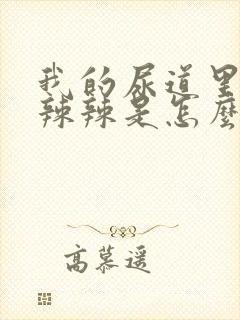 我的尿道里
辣辣是怎麼
高慕遥